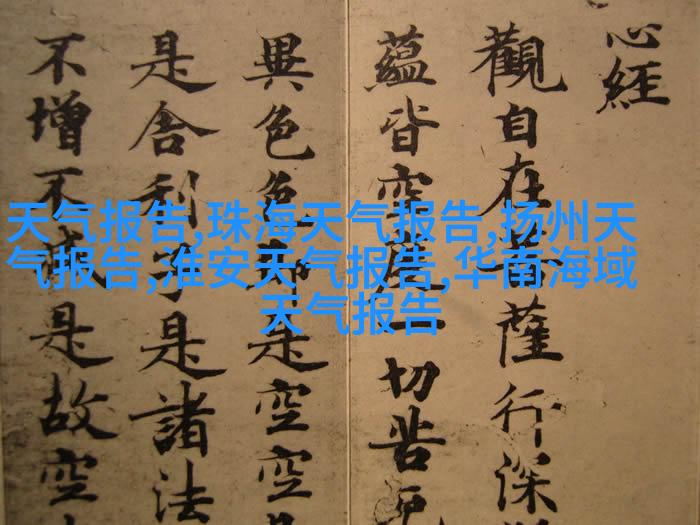 心經
觀自在菩薩行深
蘊皆空度一切苦厄
異色色即是空空
是舍利子是諸法
不增不減是故空
天气报告,珠海天气报告,扬州天
气报告,淮安天气报告,华南海域
天气报告